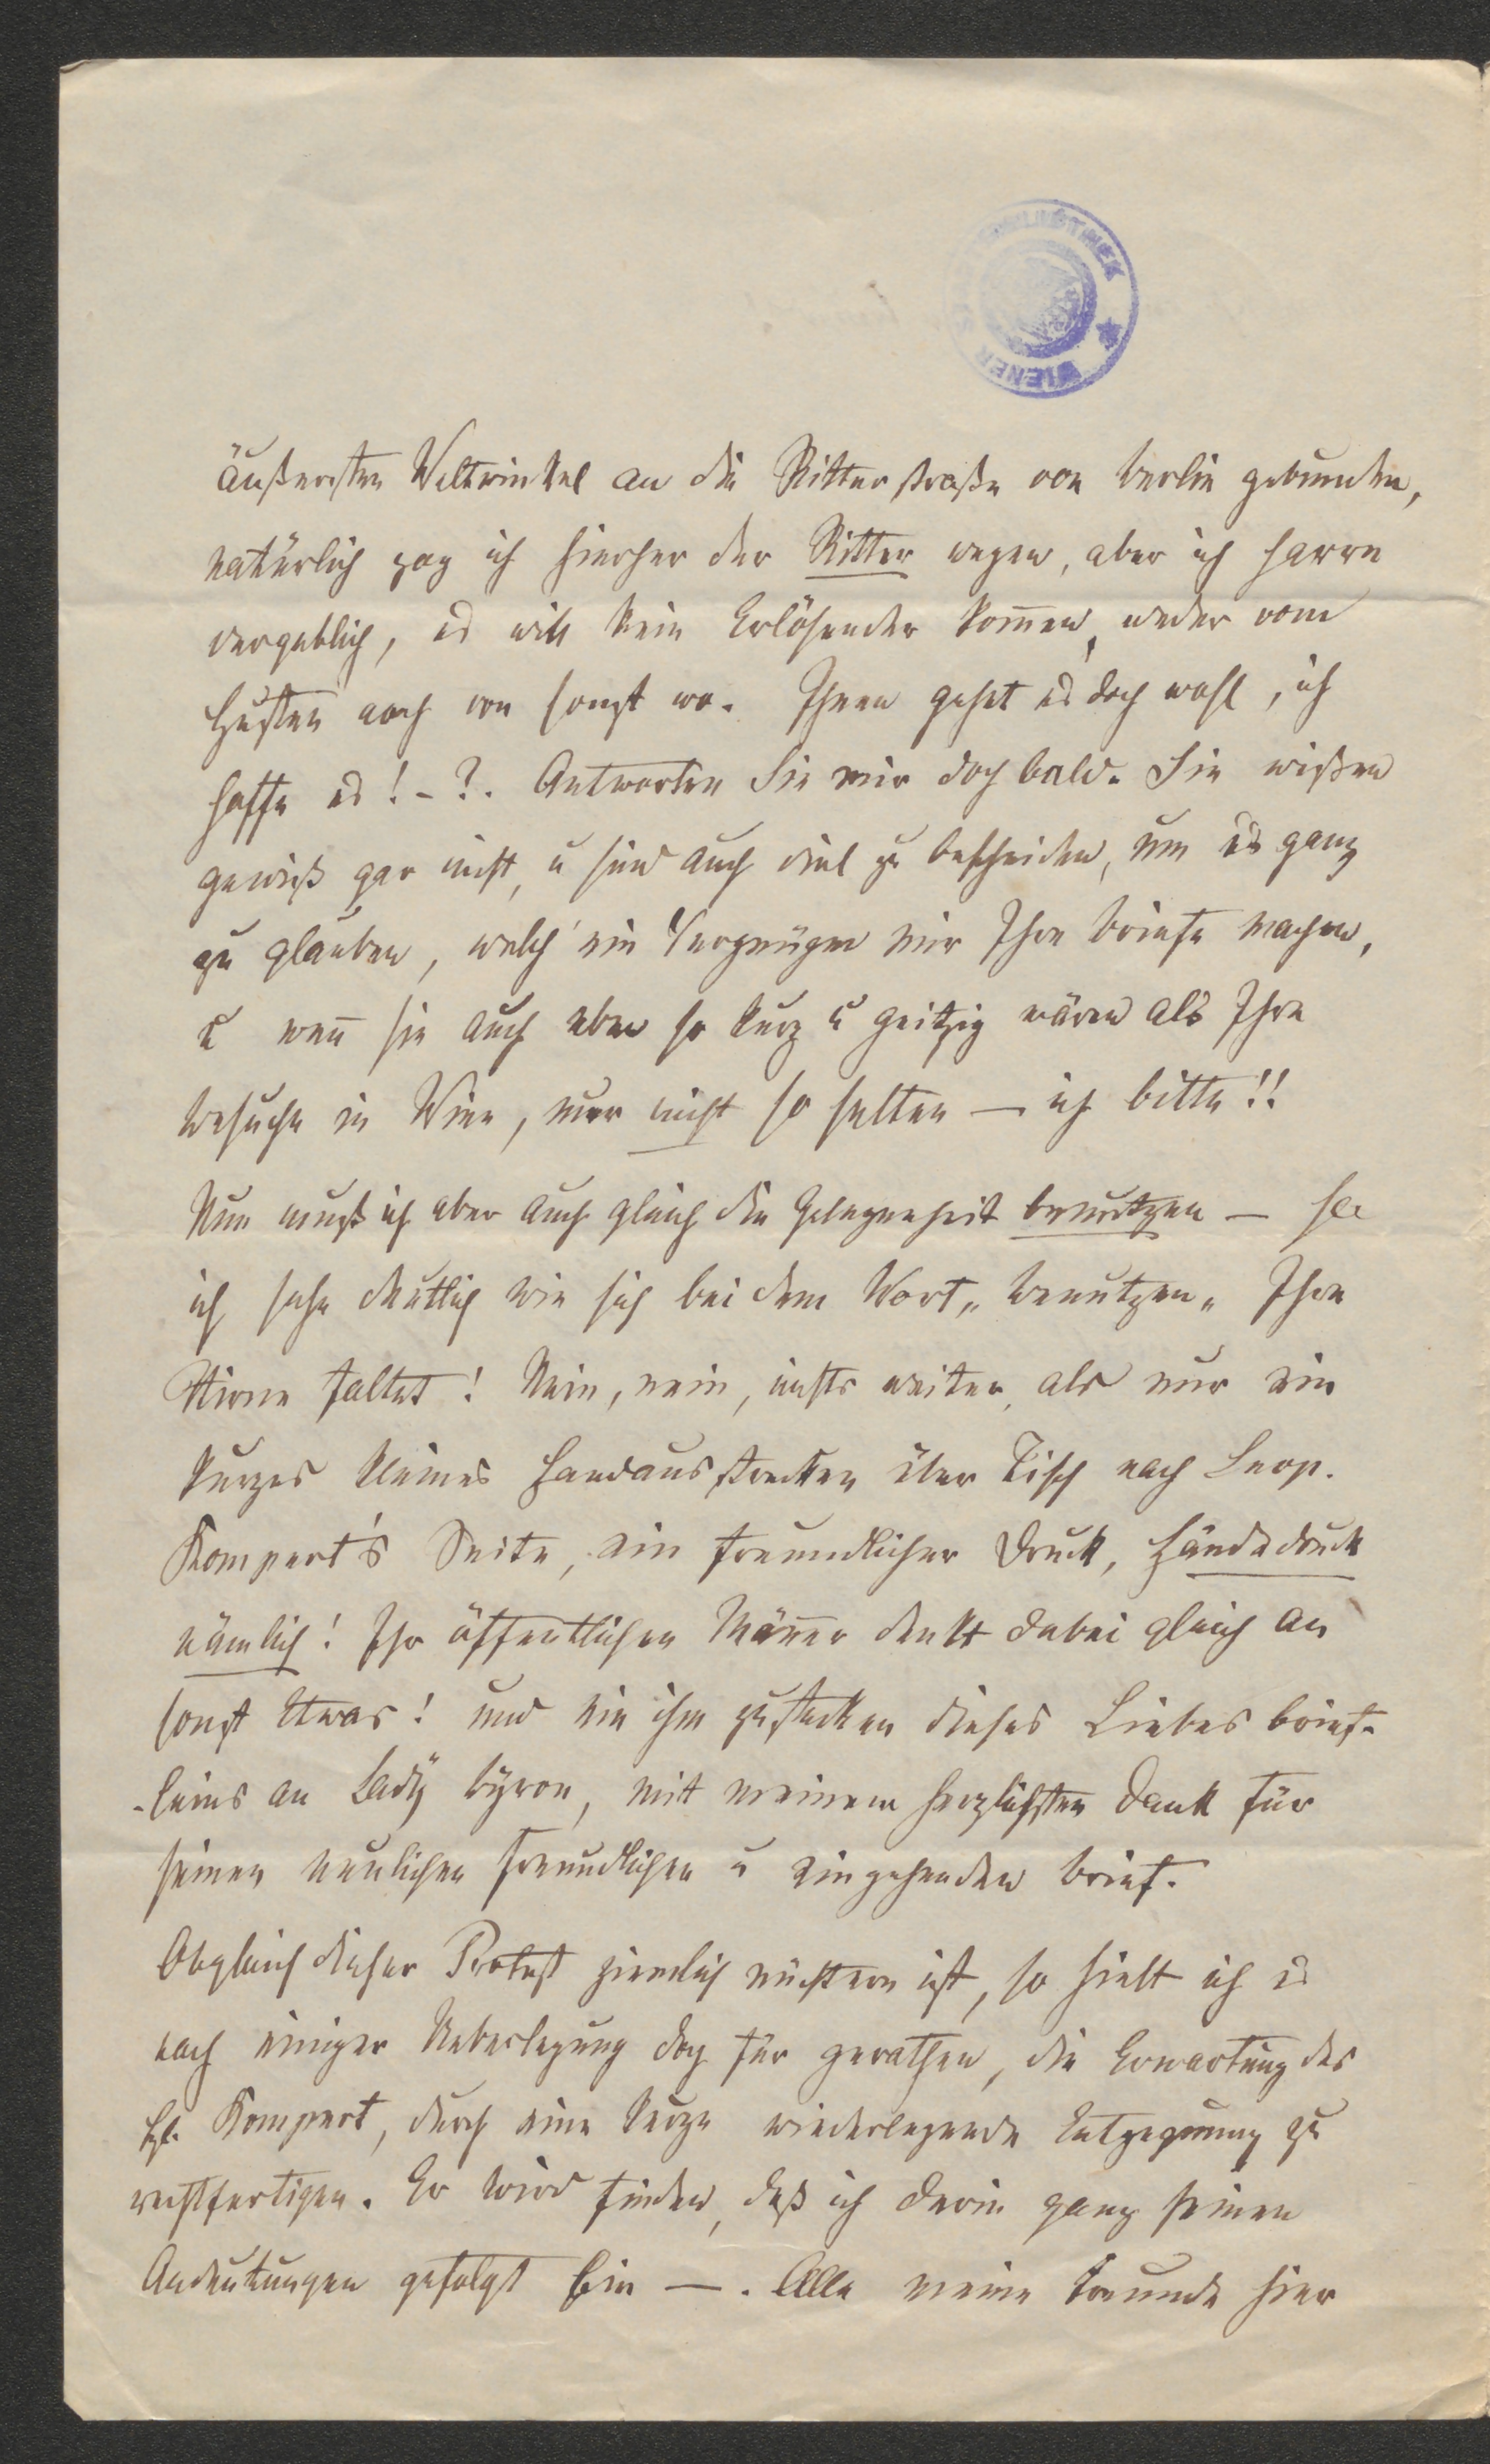 WIENER STADTBIBLIOTHEK
äußersten Weltwinkel an die Ritterstraße von Berlin gebunden,
natürlich zog ich hierher der Ritter wegen, aber ich harre
vergeblich, es will kein Erlösender kom̄en, weder vom
Husten noch von sonst wo. Ihnen gehet es doch wohl, ich
hoffe es! - ?. Antworten Sie mir doch bald. Sie wißen
gewiß gar nicht, u sind auch viel zu bescheiden, um es ganz
zu glauben, welch' ein Vergnügen mir Ihre Briefe machen,
u wen̄ sie auch eben so kurz u geitzig wären als Ihre
Besuche in Wien, nur nicht so selten — ich bitte!!
Nun muß ich aber auch gleich die Gelegenheit benutzen — ha
ich sehe deutlich wie sich bei dem Wort „benutzen„ Ihre
Stirne faltet! Nein, nein, nichts weiter, als nur ein
kurzes kleines Handausstrecken über Tisch nach Leop.
Kompert's Seite, ein freundlicher Druck, Händedruck
nämlich! Ihr öffentlichen Män̄er denkt dabei gleich an
sonst Etwas! und ein ihm zustecken dieses Liebesbrief-
-leins an Lady Byron, mit meinem herzlichsten Dank für
seinen neulichen freundlichen u eingehenden Brief.
Obgleich dieser Protest ziemlich nüchtern ist, so hielt ich es
nach einiger Ueberlegung doch für gerathen, die Erwartung des
H. Kompert, durch eine kurze wiederlegende Entgegnung zu
rechtfertigen. Er wird finden, daß ich darin ganz seinen
Andeutungen gefolgt bin —. Alle meine Freunde hier